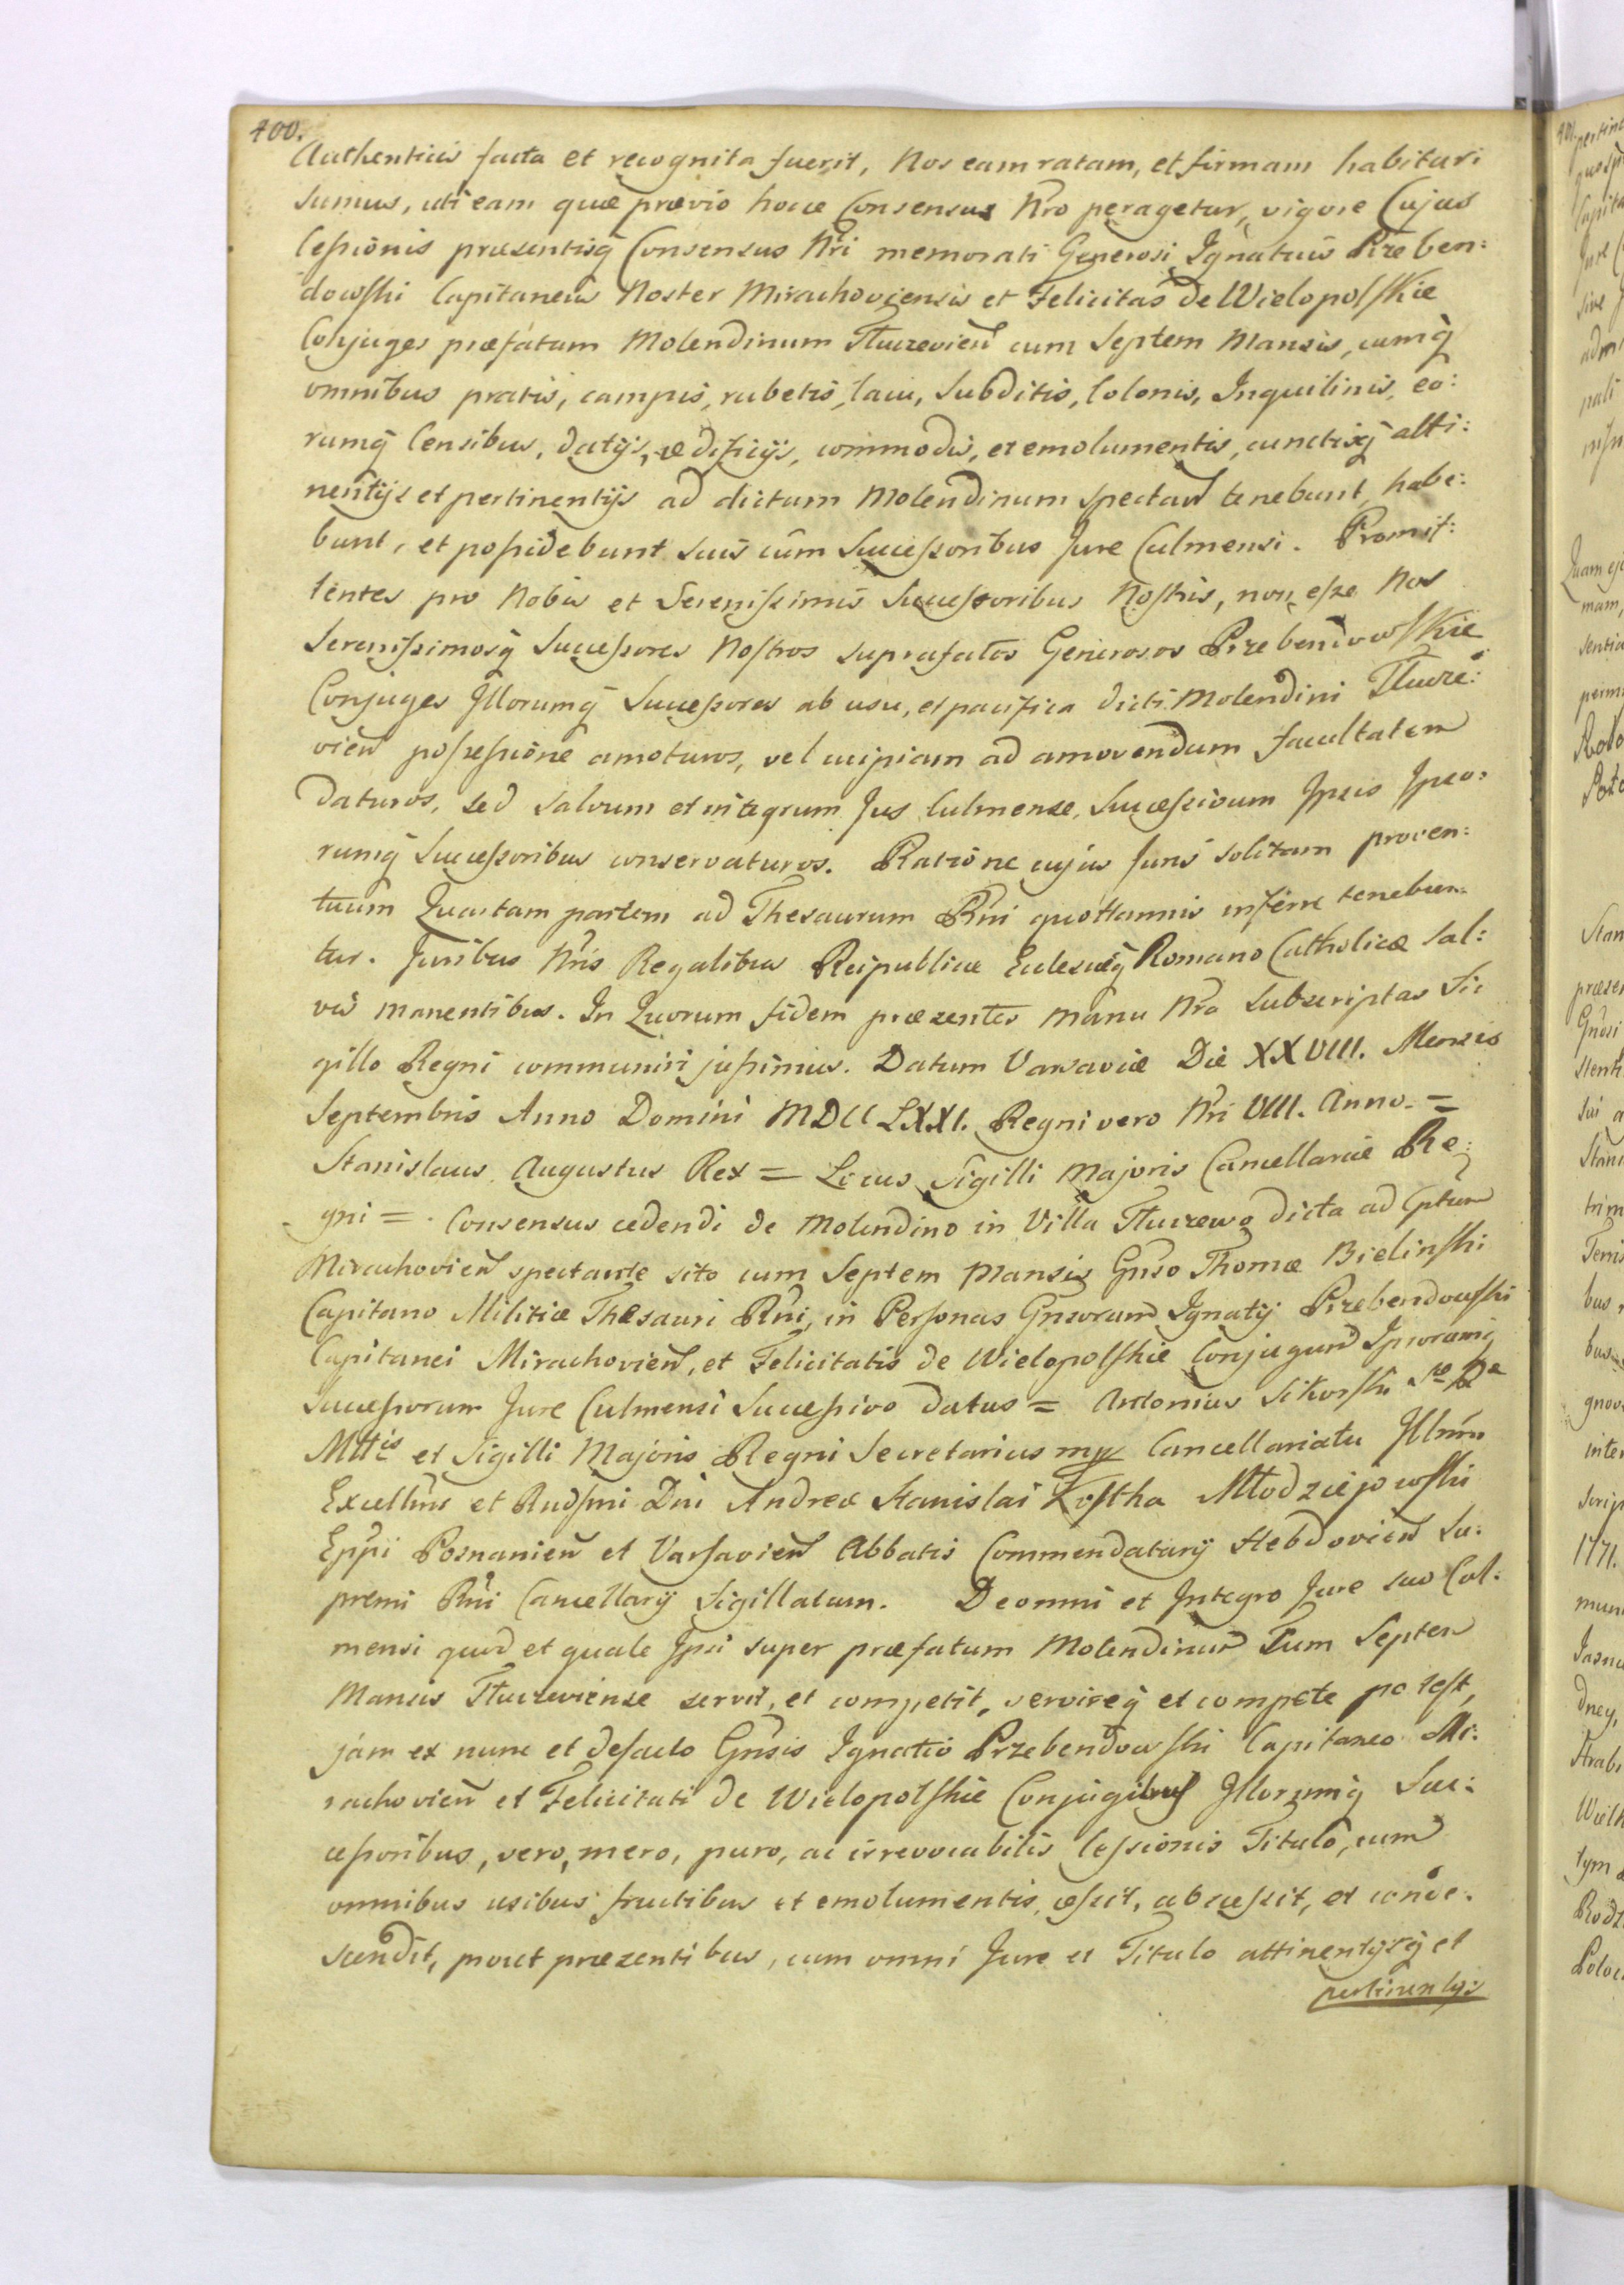 400.
Authenticis facta et recognita fuerit, Nos eam ratam, et firmam habituri
sumus, uti eam quæ prævio hocce Consensus Nro peragetur, vigore Cujus
Cessionis præsentisq Consensus Nri memorati Generosi Ignatius Przeben:
dowski Capitaneus Noster Mirachoviensis et Felicitas de Wielopolskie
Conjuges præfatum Molendinum Tłuczevien cum Septem Mansis, cumq
omnibus pratis, campis, rubetis, lacu, Subditis, Colonis, Inquilinis, eo:
rumq Censibus, datijs, ædificijs, commodis, et emolumentis, cunctisq atti:
nentijs et pertinentijs ad dictum Molendinum spectan tenebunt, habe:
bunt, et possidebunt suis cum Successoribus Jure Culmensi. Promit:
tentes pro Nobis et Serenissimis Successoribus Nostris, non esse Nos
Serenissimosq Successores Nostros suprafatos Generosos Przebendowskie
Conjuges Illorumq Successores ab usu, et pacifica dicti Molendini Tłucze:
vien possessione amoturos, vel cuipiam ad amovendum facultatem
daturos, sed salvum et integrum Jus Culmense, Successivum Ipsis Ipso:
rumq Successoribus conservaturos. Ratione cujus Juris solitam proven:
tuum Quartam partem ad Thesaurum Rni quottannis inferre tenebun:
tur. Juribus Nris Regalibus Reipublicæ Eclesiæq Romano Catholicæ sal:
vis manentibus. In Quorum fidem præsentes manu Nra subscriptas Si:
gillo Regni communiri jussimus. Datum Varsaviæ Die XXVIII. Mensis
Septembris Anno Domini MDCCLXXI. Regni vero Nri VIII. Anno. =
Stanislaus Augustus Rex = Locus Sigilli Majoris Cancellariæ Re:
gni = . Consensus cedendi de Molendino in Villa Tłuczewo dicta ad Cptum
Mirachovien spectante sito cum Septem Mansis Gnso Thomæ Bielinski
Capitano Militiæ Thesauri Rni, in Personas Gnsorum Ignatij Przebendowski
Capitanei Mirachovien, et Felicitatis de Wielopolskie Conjugum Ipsorumq
Successorum Jure Culmensi Successivo datus = Antonius Sikorski
Mttis et Sigilli Majoris Regni Secretarius mpp Cancellariatu Illmi
Excellmi et Rndsmi Dni Andreæ Stanislai Kostka Młodziejowski
Eppi Posnanien et Varsavien Abbatis Commendatarij Hebdovien Su:
premi Rni Cancellarij Sigillatum. De omni et Integro Jure suo Cul:
mensi quod et quale Ipsi super præfatum Molendinum Cum Septem
Mansis Tłuczeviense servit, et competit, servireq et compete potest,
jam ex nunc et defacto Gnsis Ignatio Przebendowski Capitaneo Mi:
rachovien et Felicitati de Wielopolskie Conjugibus Illorumq Suc:
cessoribus, vero, mero, puro, ac irrevocabilis Cessionis Titulo, cum
omnibus usibus fructibus et emolumentis, cessit, abscessit, et conde:
scendit, prout præsentibus, cum omni Jure et Titulo attinentijsq et
pertinentijs